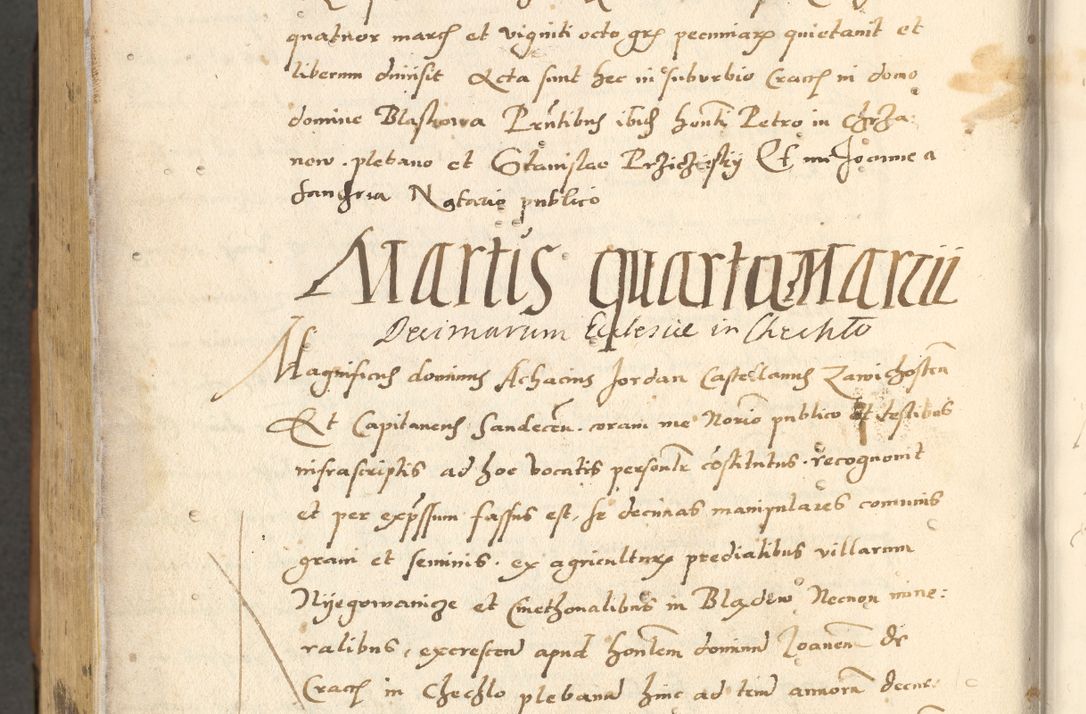 quatuor marcs et viginti octo grs pecuniarx quietauit et
liberum dimisit Acta sunt hec in suburbio Cracs in domo
domine Blaskowa Pntibus ibids honti Petro in Chrza:
now . plebano et Stanislao Et me Joanne a
Notario publico
Martis quarta Marcii
Decimarum Eclesiae in Chechło
Magnificus dominus Achacius Jordan Castellanus Zawichosten
Et Capitaneus Sandecen . coram me Norio publico et testibus
infrascriptis ad hoc vocatis personlr cōstitutus . recognouit
et per expssum fassus est, se decimas manipulares comunis
grani et seminis . ex agriculturx predialibus villarum
Nyegowanicze et Cmethonalibus in Blądow Necnon mine:
ralibus, excrescen apud honlem dominum Joanem de
Cracs in Chechlo plebanum hinc ad trium annorum decur